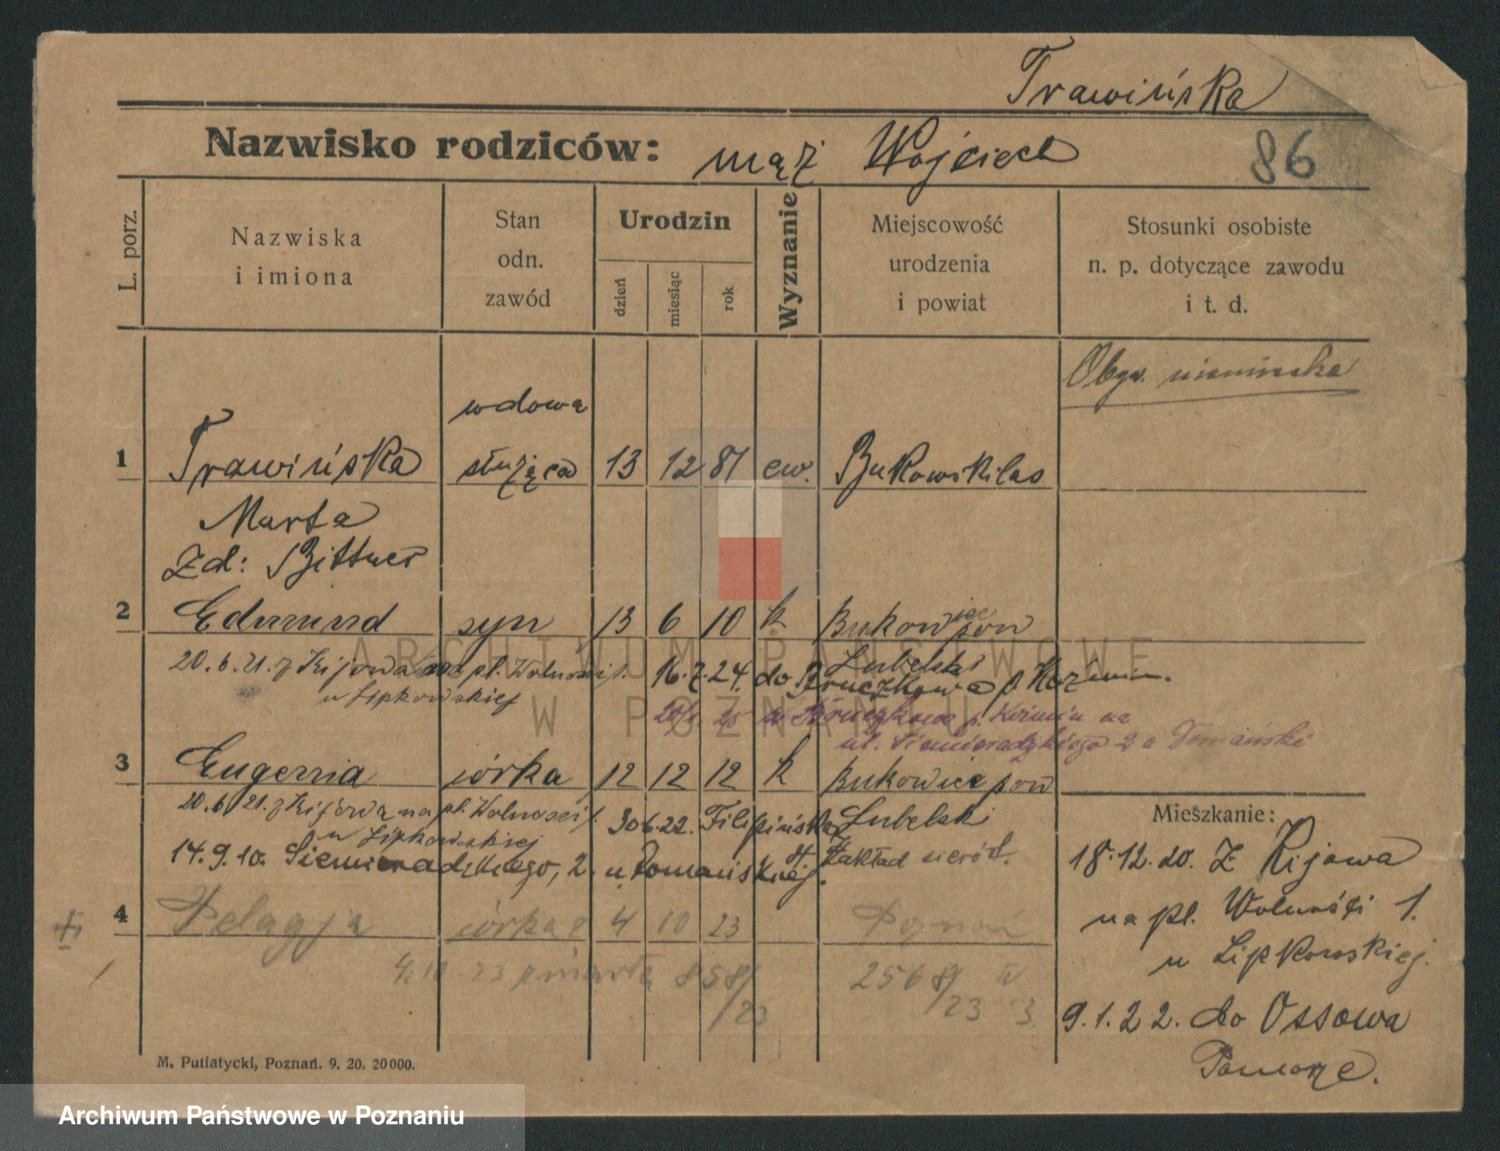 Trawińska
Nazwisko rodziców: mąż Wojciech
86
L. porz.
Nazwiska
i imiona
Stan
odn.
zawód
Urodzin
dzień
miesiąc
rok
Wyznanie
Miejscowość
urodzenia
i powiat
Stosunki osobiste
n. p. dotyczące zawodu
i t. d.
Obyw. niemiecka
wdowa
1 Trawińska służąca 13 12 81 ew. Bukowskilas
Marta
Zd: Bittner
2 Edmund syn 13 6 10 k Bukowice pow
Lubelski
20.6.21. z Kijowa na pl. Wolności 1. 16.7.24. do Bruczkowa p Koźmin.
u Lipkowskiej
z Bruczkowa p. Koźmin na
ul. Siemieradzkiego 2 a Domański
3 Eugenia córka 12 12 12 k Bukowice pow
Lubelski
20.6.21. z Kijowa na pl. Wolności 1. 30.6.22. Filipińska
u Lipkowskiej
Zakład sierót.
14.9.10. Siemieradzkiego, 2. u Domańskiej.
4 Pelagja córka 4 10 23 Poznań
4.10.23 zmarła 858/23 2568/23 IV
3.
Mieszkanie:
18.12.20. Z Kijowa
na pl. Wolności 1.
u Lipkowskiej.
9.1.22. do Ossowa
Pomorze.
M. Putiatycki, Poznań. 9. 20. 20000.
ARCHIWUM PAŃSTWOWE
W POZNANIU
Archiwum Państwowe w Poznaniu